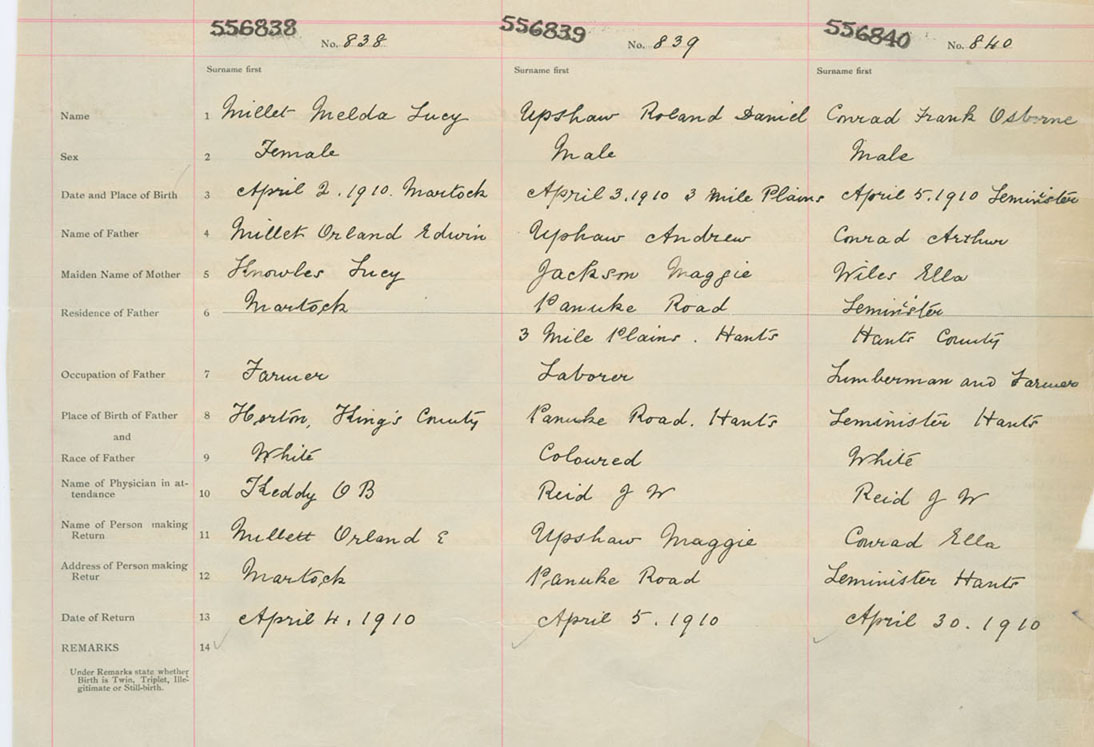 556838 No. 838 556839 No. 839 556840 No. 840
Surname first Surname first Surname first
Name 1 Millet Melda Lucy Upshaw Roland Daniel Conrad Frank Osborne
Sex 2 Female Male Male
Date and Place of Birth 3 April 2. 1910. Martock April 3. 1910 3 Mile Plains April 5. 1910 Leminister
Name of Father 4 Millet Orland Edwin Upshaw Andrew Conrad Arthur
Maiden Name of Mother 5 Knowles Lucy Jackson Maggie Wiles Ella
Residence of Father 6 Martock Panuke Road Leminister
3 Mile Plains. Hants Hants County
Occupation of Father 7 Farmer Laborer Lumberman and Farmer
Place of Birth of Father 8 Horton, King's County Panuke Road. Hants Leminister Hants
and
Race of Father 9 White Coloured White
Name of Physician in at-
tendance 10 Keddy O B Reid J W Reid J W
Name of Person making
Return 11 Millett Orland E Upshaw Maggie Conrad Ella
Address of Person making
Retur 12 Martock Panuke Road Leminister Hants
Date of Return 13 April 4. 1910 April 5. 1910 April 30. 1910
REMARKS 14
Under Remarks state whether
Birth is Twin, Triplet, Ille-
gitimate or Still-birth.